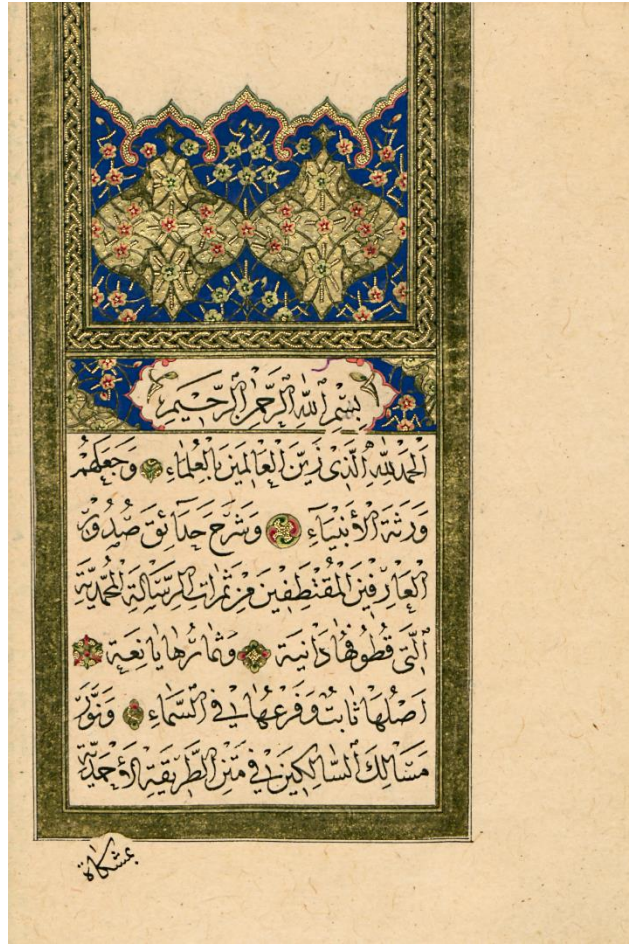 بِسْمِ اللهِ الرَّحْمٰنِ الرَّحِيْمِ
اَلْحَمْدُ لِلّٰهِ الَّذِى زَيَّنَ الْعَالَمِيْنَ بِالْعُلَمَاءِ وَجَعَلَهُمْ
وَرَثَةَ الْأَنْبِيَاءِ وَشَرَّحَ حَدَائِقَ صُدُوْرِ
الْعَارِفِيْنَ الْمُقْتَطِفِيْنَ مِنْ ثَمَرَاتِ الرِّسَالَةِ الْمُحَمَّدِيَّةِ
الَّتِى قُطُوْفُهَا دَانِيَةٌ وَثِمَارُهَا يَانِعَةٌ
اَصْلُهَا ثَابِتٌ وَفَرْعُهَا فِى السَّمَاءِ وَنَوَّرَ
مَسَالِكَ السَّالِكِيْنَ فِى مَتْنِ الطَّرِيْقَةِ الْأَحْمَدِيَّةِ
بمشكاة